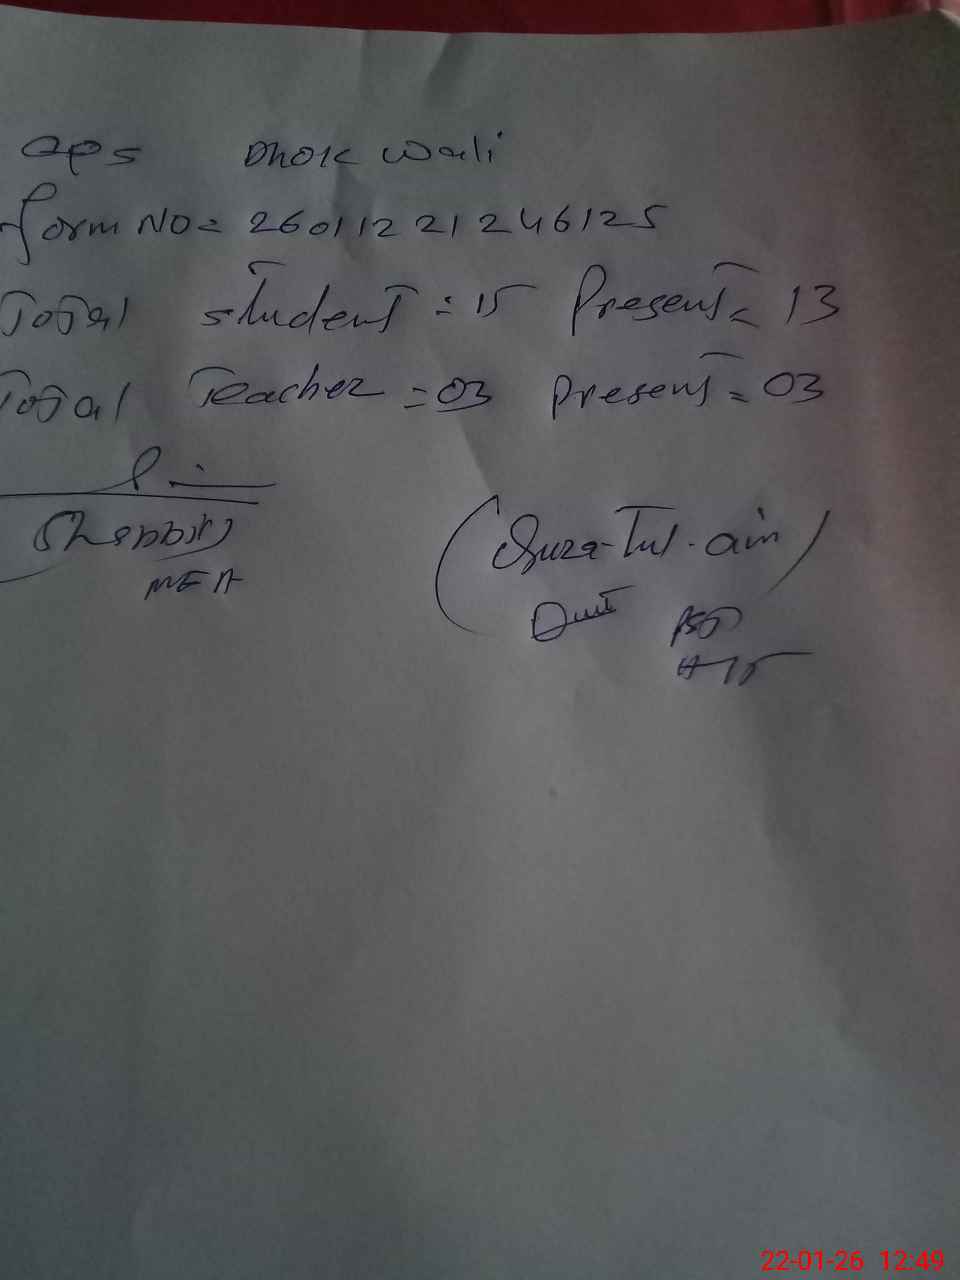 GPS Dhok Wali
form NO= 26011221246125
Total student = 15 Present = 13
Total Teacher = 03 Present = 03
(Shabbir)
MEA
(Qura-Tul-ain)
PST
22-01-26 12:49